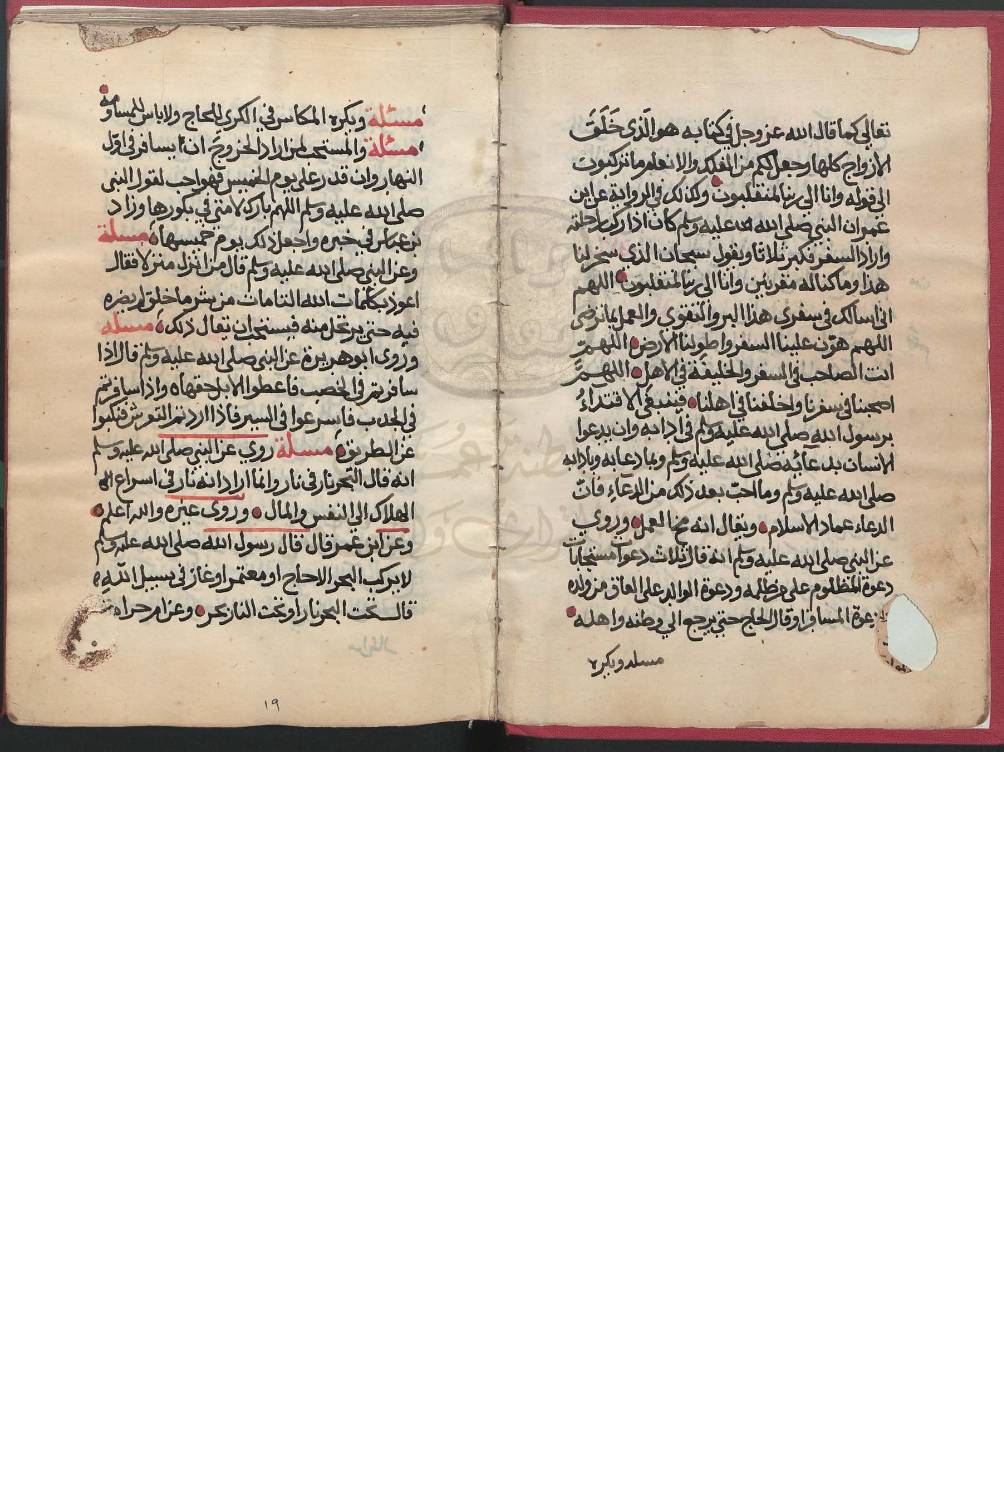 تعالى كما قال الله عز وجل في كتابه هو الذي خَلَقَ
الأزواج كلها وجعل لكم من الفلك والانعام ما تركبون
الى قوله وانا الى ربنا لمنقلبون وكذلك في الرواية عن ابن
عمر ان النبي صلى الله عليه وسلم كان اذا ركب راحلته
واراد السفر فكبر ثلاثا ويقول سبحان الذي سخر لنا
هذا وما كنا له مقرنين وانا الى ربنا لمنقلبون اللهم
اني اسالك في سفري هذا البر والتقوي والعمل بما ترضى
اللهم هوّن علينا السفر واطو لنا الأرض اللهم
انت الصاحب في السفر والخليفة في الأهل اللهم
اصحبنا في سفرنا واخلفنا في اهلنا فينبغي الاقتداءُ
برسول الله صلى الله عليه وسلم في ادابه وان يدعوا
الانسان بدعائه صلى الله عليه وسلم وبما دعا به وبادابه
صلى الله عليه وسلم وما احبّ بعد ذلك من الدعاء فانّ
الدعاء عماد الاسلام ويقال انه مخ العمل وروي
عن النبي صلى الله عليه وسلم انه قال ثلاث دعوات مستجابات
دعوة المظلوم على من ظلمه ودعوة الوالد على العاق من ولده
ودعوة المسافر او قال الحاج حتى يرجع الي وطنه واهله
مسلة ويكره
مسئلة ويكره المكاس في الكري للحاج ولا باس للمساومة
مسئلة والمستحب لمن اراد الخروج ان يسافر في اوّل
النهار وان قدر على يوم الخميس فهو احب لقول النبي
صلى الله عليه وسلم اللهم بارك لامتي في بكورها وزاد
بن عباس في خبره واجعل ذلك يوم خميسها مسلة
وعن النبي صلى الله عليه وسلم قال من نزل منزلا فقال
اعوذ بكلمات الله التامات من شر ما خلق لم يضره
فيه حتى يرتحل منه فيستحب ان يقال ذلك مسله
وروى ابو هريرة عن النبي صلى الله عليه وسلم قال اذا
سافرتم في الخصب فاعطوا الابل حقها واذا سافرتم
في الجدب فاسرعوا في السير فاذا اردتم التعرش فنكبوا
عن الطريق مسلة روي عن النبي صلى الله عليه وسلم
انه قال البحر نار في نار وانما اراد انه نار في اسراع
الهلاك الى النفس والمال وروى غيره والله اعلم
وعن ابن عمر قال قال رسول الله صلى الله عليه وسلم
لا يركب البحر الا حاج او معتمر او غاز في سبيل الله
قال تحت البحر نار او تحت النار بحر وعن ام حرام
١٩